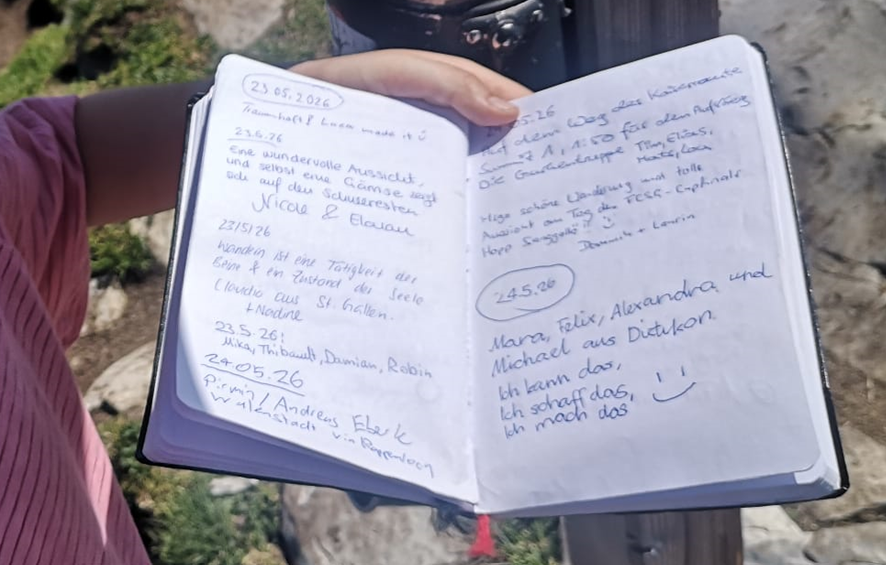 23.05.2026
Traumhaft & Luca made it :)
23.5.26
eine wundervolle Aussicht,
und selbst eine Gämse zeigt
sich auf den Schwersten
Nicole &
23/5/26
Wandern ist eine Tätigkeit der
Beine & ein Zustand der Seele
Claudio aus St. Gallen.
+ Nadine
23.5.26:
Mika, Thibault, Damian, Robin
24.05.26
Pirmin / Andreas Eberle
Walenstadt via
5.26
Auf dem Weg das
1, 1:50 für den Aufstieg
Die Tim, Elias,
Mega schöne Wanderig und tolle
Aussicht am Tag des FCSG - Cupfinals
Hopp Sanggalle!! :)
+ Laurin
24.5.26
Mara, Felix, Alexandra und
Michael aus Dietikon.
Ich kann das,
Ich schaff das,
Ich mach das